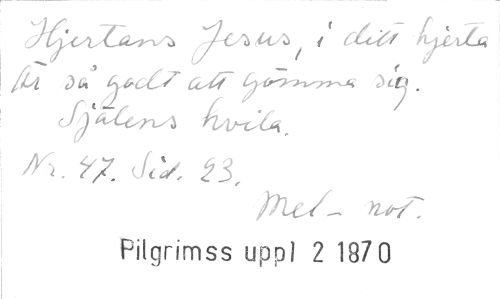 Hjertans Jesus, i ditt hjerta
Är så godt att gömma sig.
Själens hvila.
Nr. 47. Sid. 23.
Mel- not.
Pilgrimss uppl 2 1870